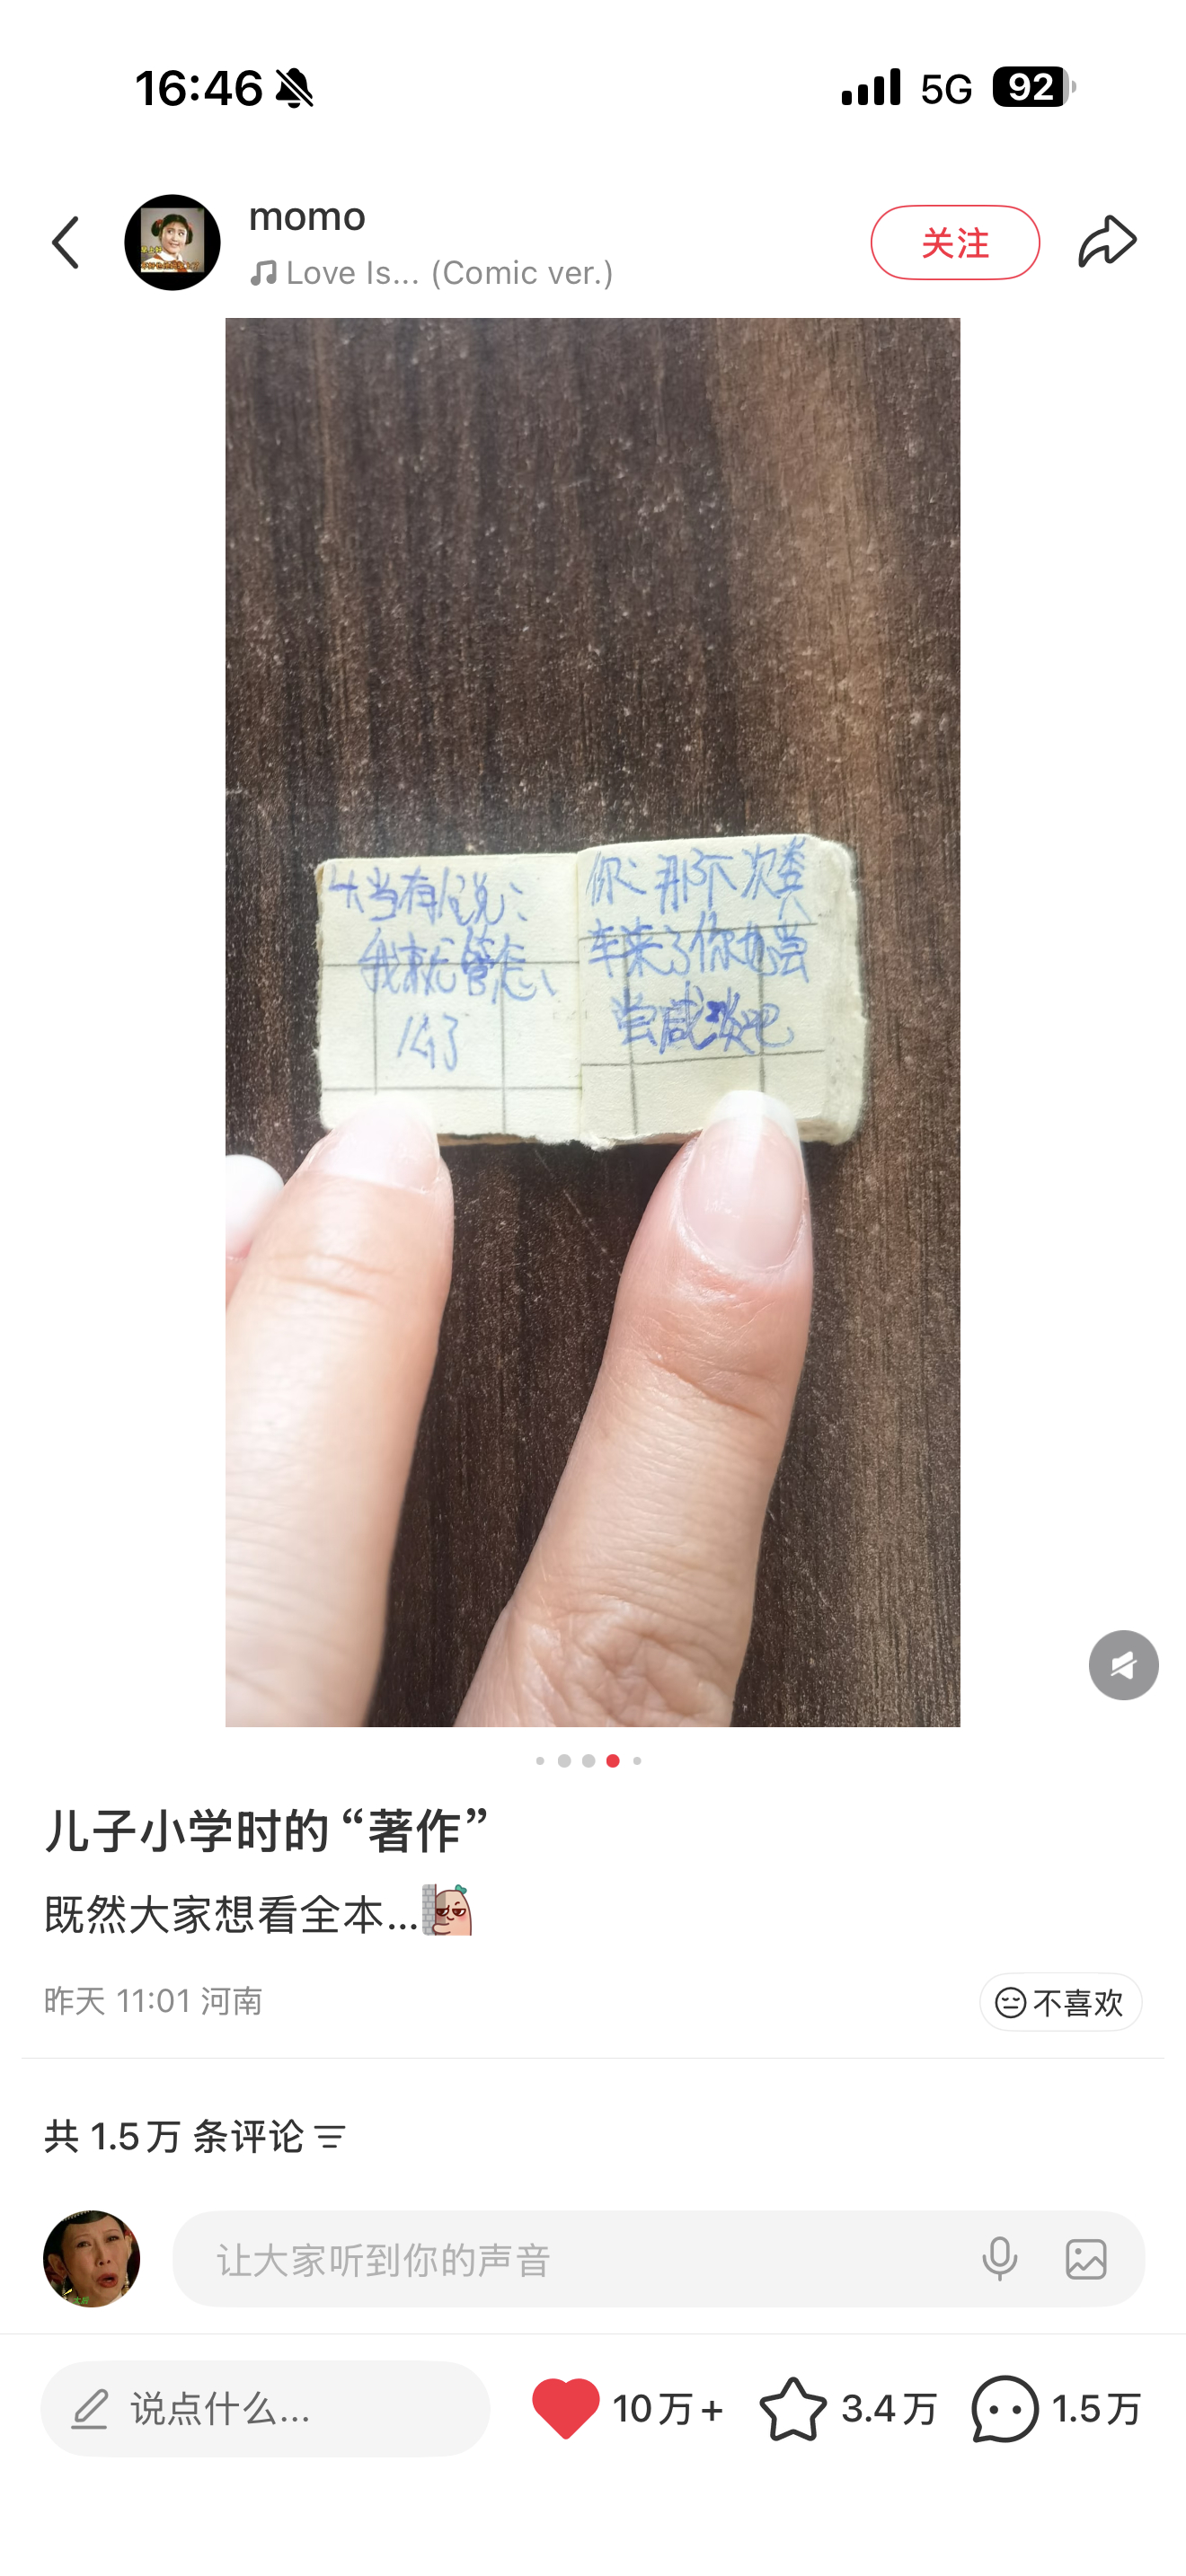 16:46
5G
92
momo
Love Is... (Comic ver.)
关注
十当有人说：
我就管怎
么了
你：那下次粪
车来了你也尝
尝咸淡吧
儿子小学时的 “著作”
既然大家想看全本...
昨天 11:01 河南
不喜欢
共 1.5万 条评论
让大家听到你的声音
说点什么...
10万+
3.4万
1.5万